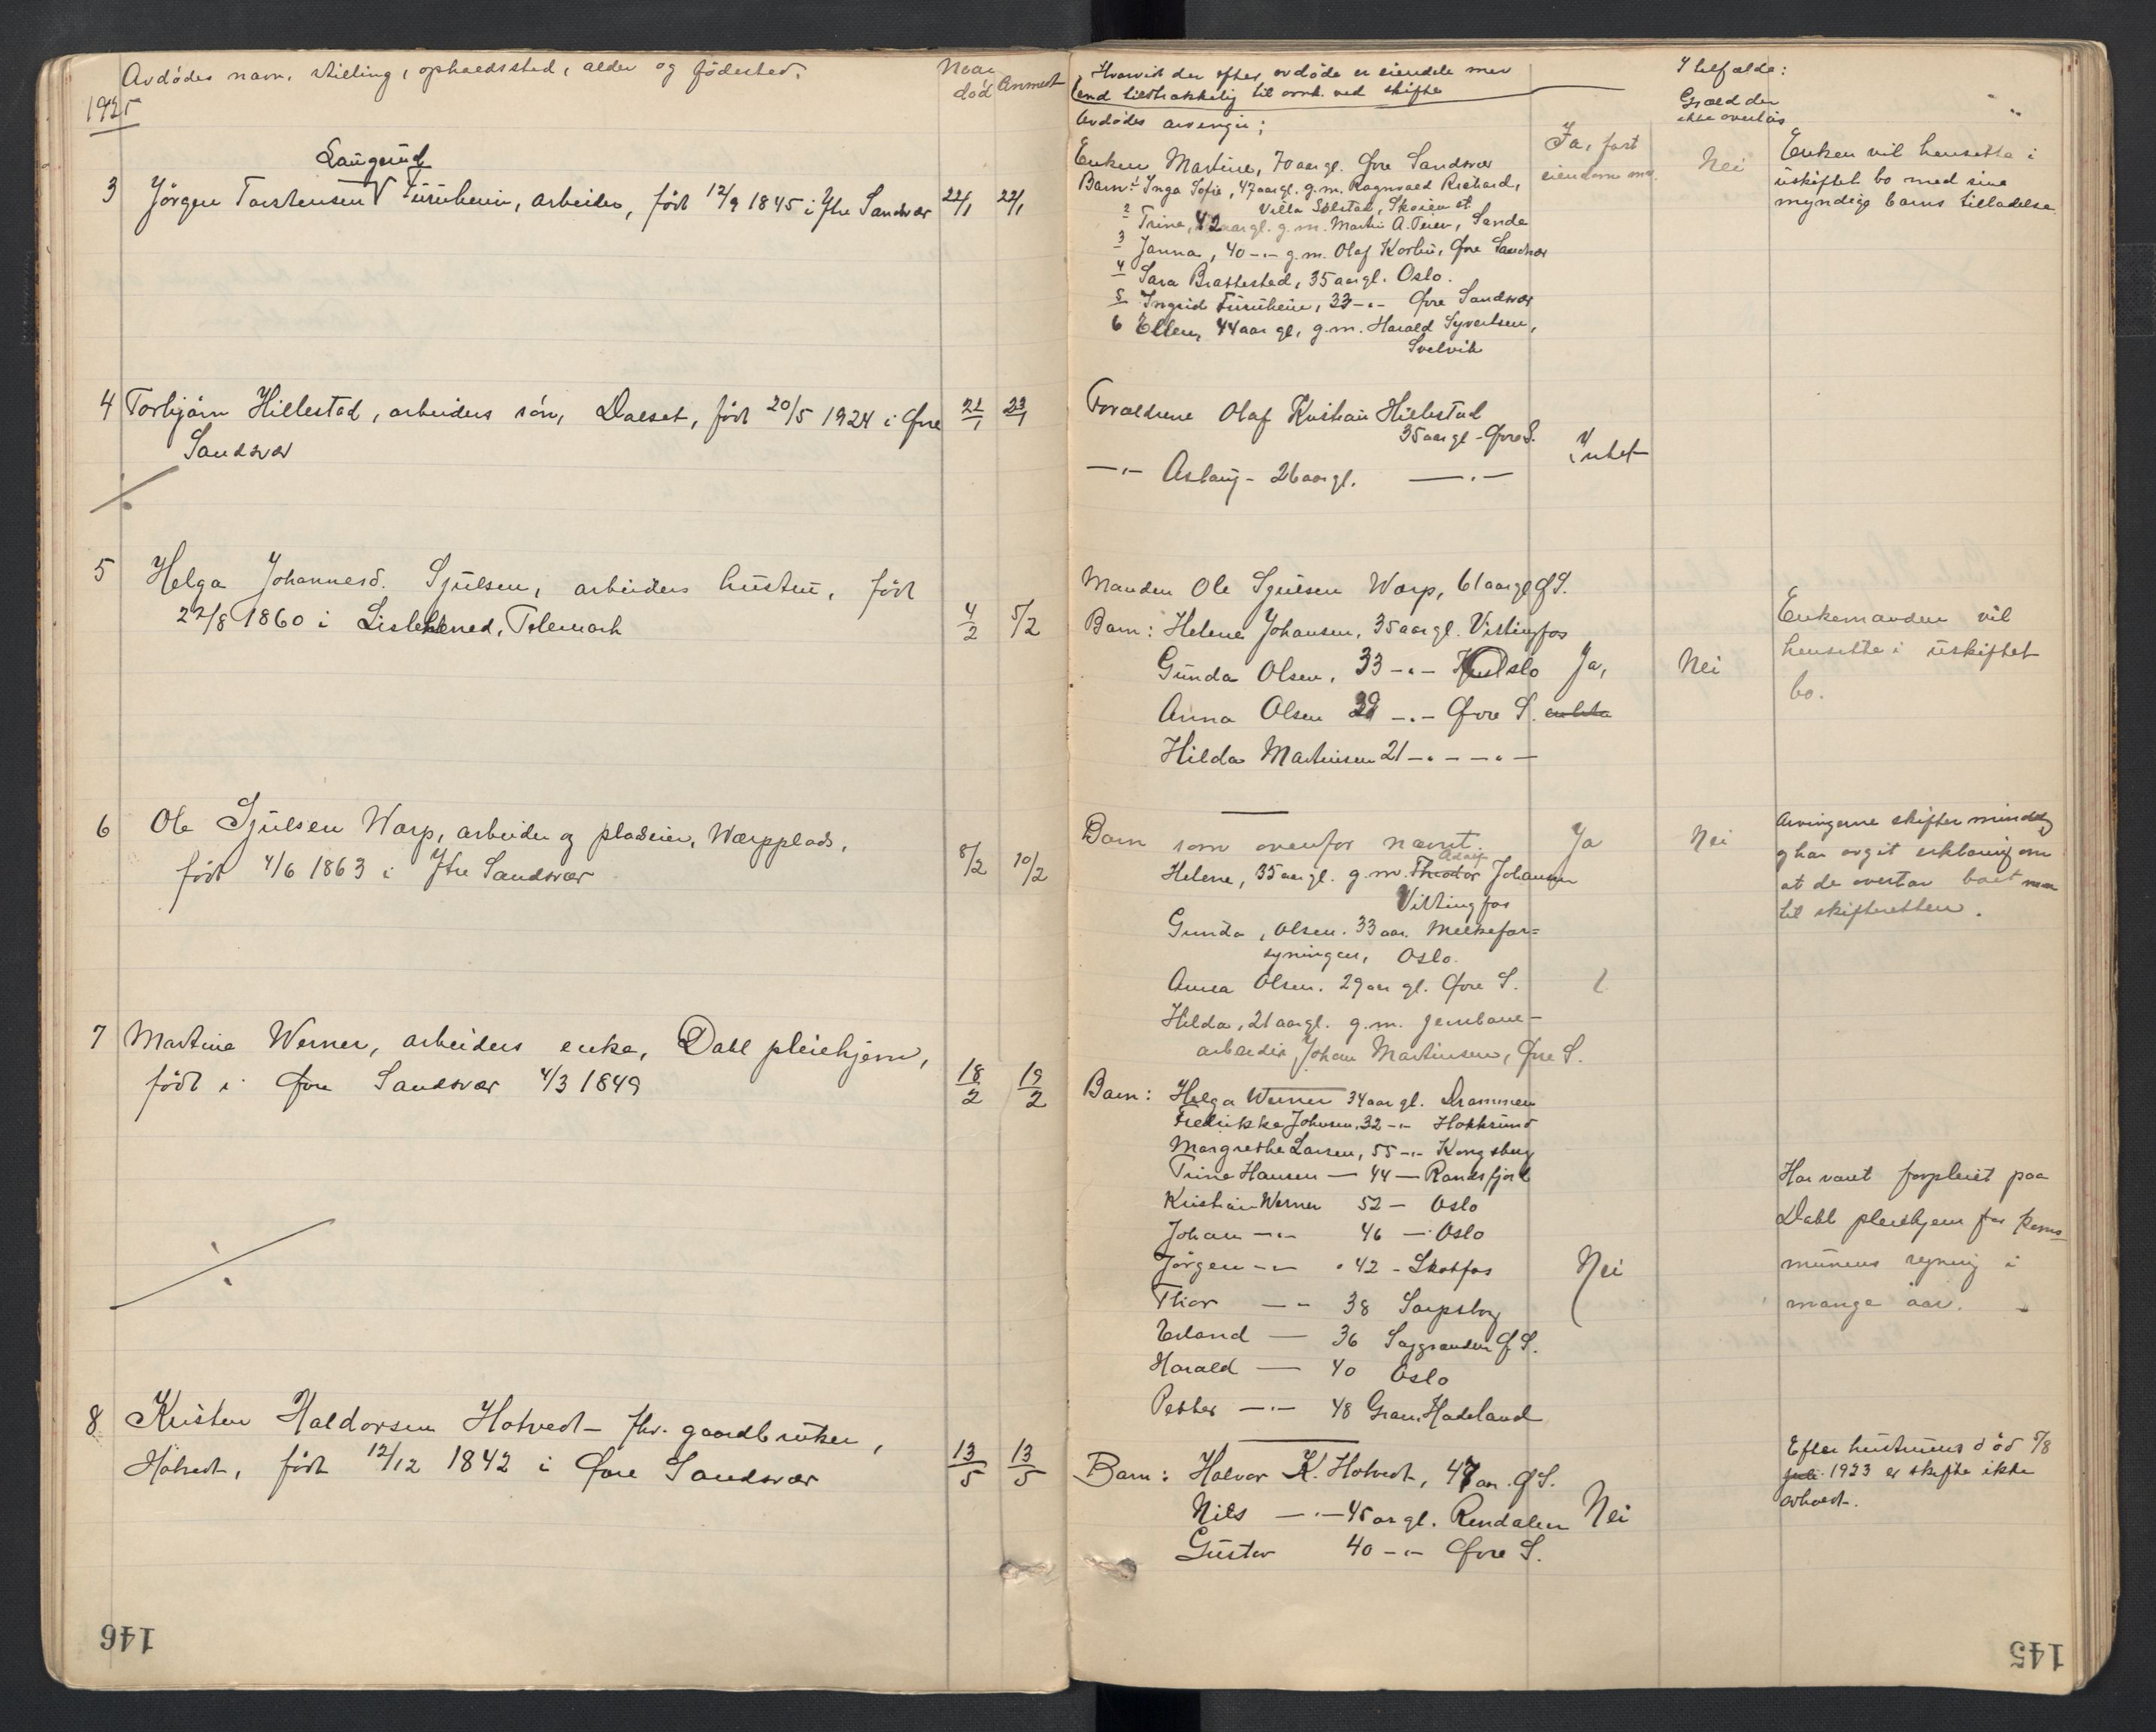 Avdödes navn, stilling, opholdssted, alder og födested.
Naar död
Anmeldt
1925
Laugerud
3 Jörgen Torstensen V Furuheim, arbeider, födt 12/9 1845 i Ytre Sandsvær 22/1 22/1
4 Torbjörn Hillestad, arbeiders sön, Dalset, födt 20/5 1924 i Øvre 21/1 23/1
Sandsvær
5 Helga Johannesd. Sjulsen, arbeiders hustru, födt
22/8 1860 i Lisleherred, Telemark 4/2 5/2
6 Ole Sjulsen Warp, arbeider og pladseier, Warpplads,
födt 4/6 1863 i Ytre Sandsvær 8/2 10/2
7 Martine Werner, arbeiders enke, Dahl pleiehjem,
födt i Øvre Sandsvær 4/3 1849 18/2 19/2
8 Kristen Haldorsen Hotvedt, fhv. gaardbruker,
Hotvedt, födt 12/12 1842 i Øvre Sandsvær 13/5 13/5
146
Hvorvidt der efter avdöde er eiendele mer
end tilstrækkelig til omk. ved skifte
I tilfælde:
Gjæld der
ikke overtas
Avdödes arvinger;
Enken Martine, 70 aar gl. Øvre Sandsvær
Ja, fast
eiendom m.v.
Nei
Enken vil hensitte i
uskiftet bo med sine
myndige barns tilladelse
Barn: 1 Inga Sofie, 47 aar gl. g.m. Ragnvald Richard,
Villa Solstad, Skoien st.
2 Trine, 42 aar gl. g.m. Martin A. Teien, Sande
3 Janna, 40 -"- g.m. Olaf Korbu, Øvre Sandsvær
4 Sara Brattestad, 35 aar gl. Oslo.
5 Ingrid Furuheim, 33 -"- Øvre Sandsvær
6 Ellen, 44 aar gl, g.m. Harald Syvertsen,
Svelvik
Forældrene Olaf Kristian Hillestad
35 aar gl - Øvre S.
-"- Aslaug - 26 aar gl. -"-
Intet
Manden Ole Sjulsen Warp, 61 aar gl Ø S.
Barn: Helene Johansen, 35 aar gl. Vittingfos
Gunda Olsen, 33 -"- Oslo Ja, Nei
Anna Olsen 29 -"- Øvre S.
Hilda Martinsen 21 -"- -"-
Enkemanden vil
hensitte i uskiftet
bo.
Barn som ovenfor nævnt. Ja Nei
Adolf
Helene, 35 aar gl. g.m. Theodor Johansen
Vittingfos
Gunda, Olsen. 33 aar. Melkefor=
syningen, Oslo.
Anna Olsen. 29 aar gl. Øvre S.
Hilda, 21 aar gl. g.m. jernbane-
arbeider Johan Martinsen, Øvre S.
Arvingerne skifter mindelig
og har avgit erklæring om
at de overtar boet
til skifteretten.
Barn: Helga Werner 34 aar gl. Drammen
Fredrikke Johnsen, 32 -"- Hokksund
Margrethe Larsen, 55 -"- Kongsberg
Trine Hansen — 44 — Randsfjord
Kristian Werner 52 - Oslo
Johan -"- 46 - Oslo
Jörgen -"- 42 - Skotfos
Thor -"- 38 Sarpsborg
Erland — 36 Saggranden Ø S.
Harald — 40 Oslo
Petter -"- 48 Gran, Hadeland
Nei
Har været forpleiet paa
Dahl pleiehjem for kom=
munens regning i
mange aar.
Barn: Halvor K. Hotvedt, 47 aar. Ø S.
Nils -"- 45 aar gl. Rendalen Nei
Gustav 40 -"- Øvre S.
Efter hustruens död 5/8
juli 1923 er skifte ikke
avholdt.
145